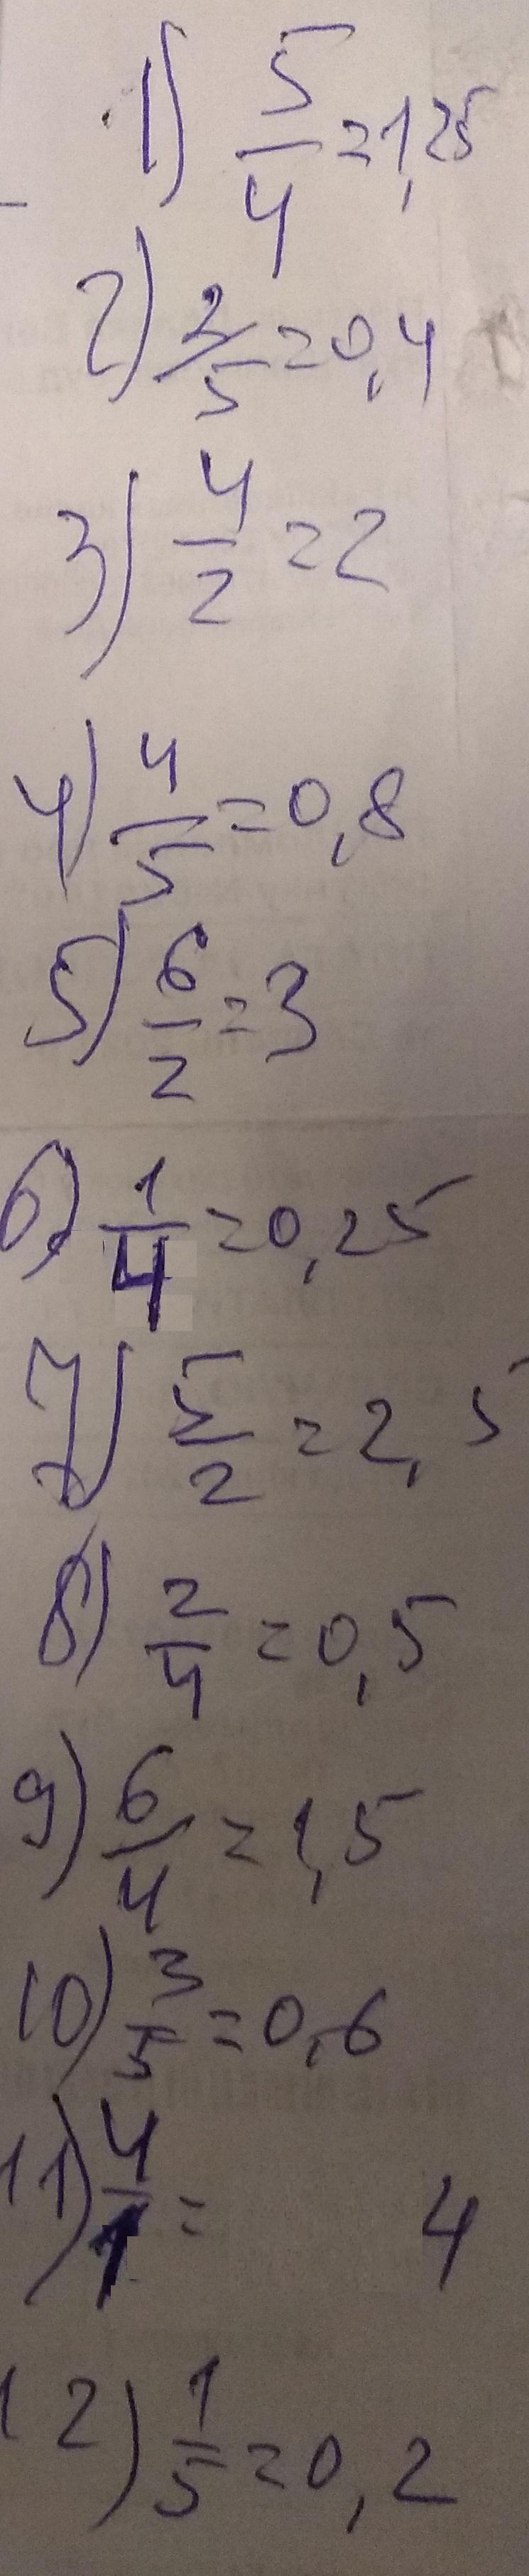 1) 5/4 = 1,25
2) 2/5 = 0,4
3) 4/2 = 2
4) 4/5 = 0,8
5) 6/2 = 3
6) 1/4 = 0,25
7) 5/2 = 2,5
8) 2/4 = 0,5
9) 6/4 = 1,5
10) 3/5 = 0,6
11) 4/1 = 4
12) 1/5 = 0,2